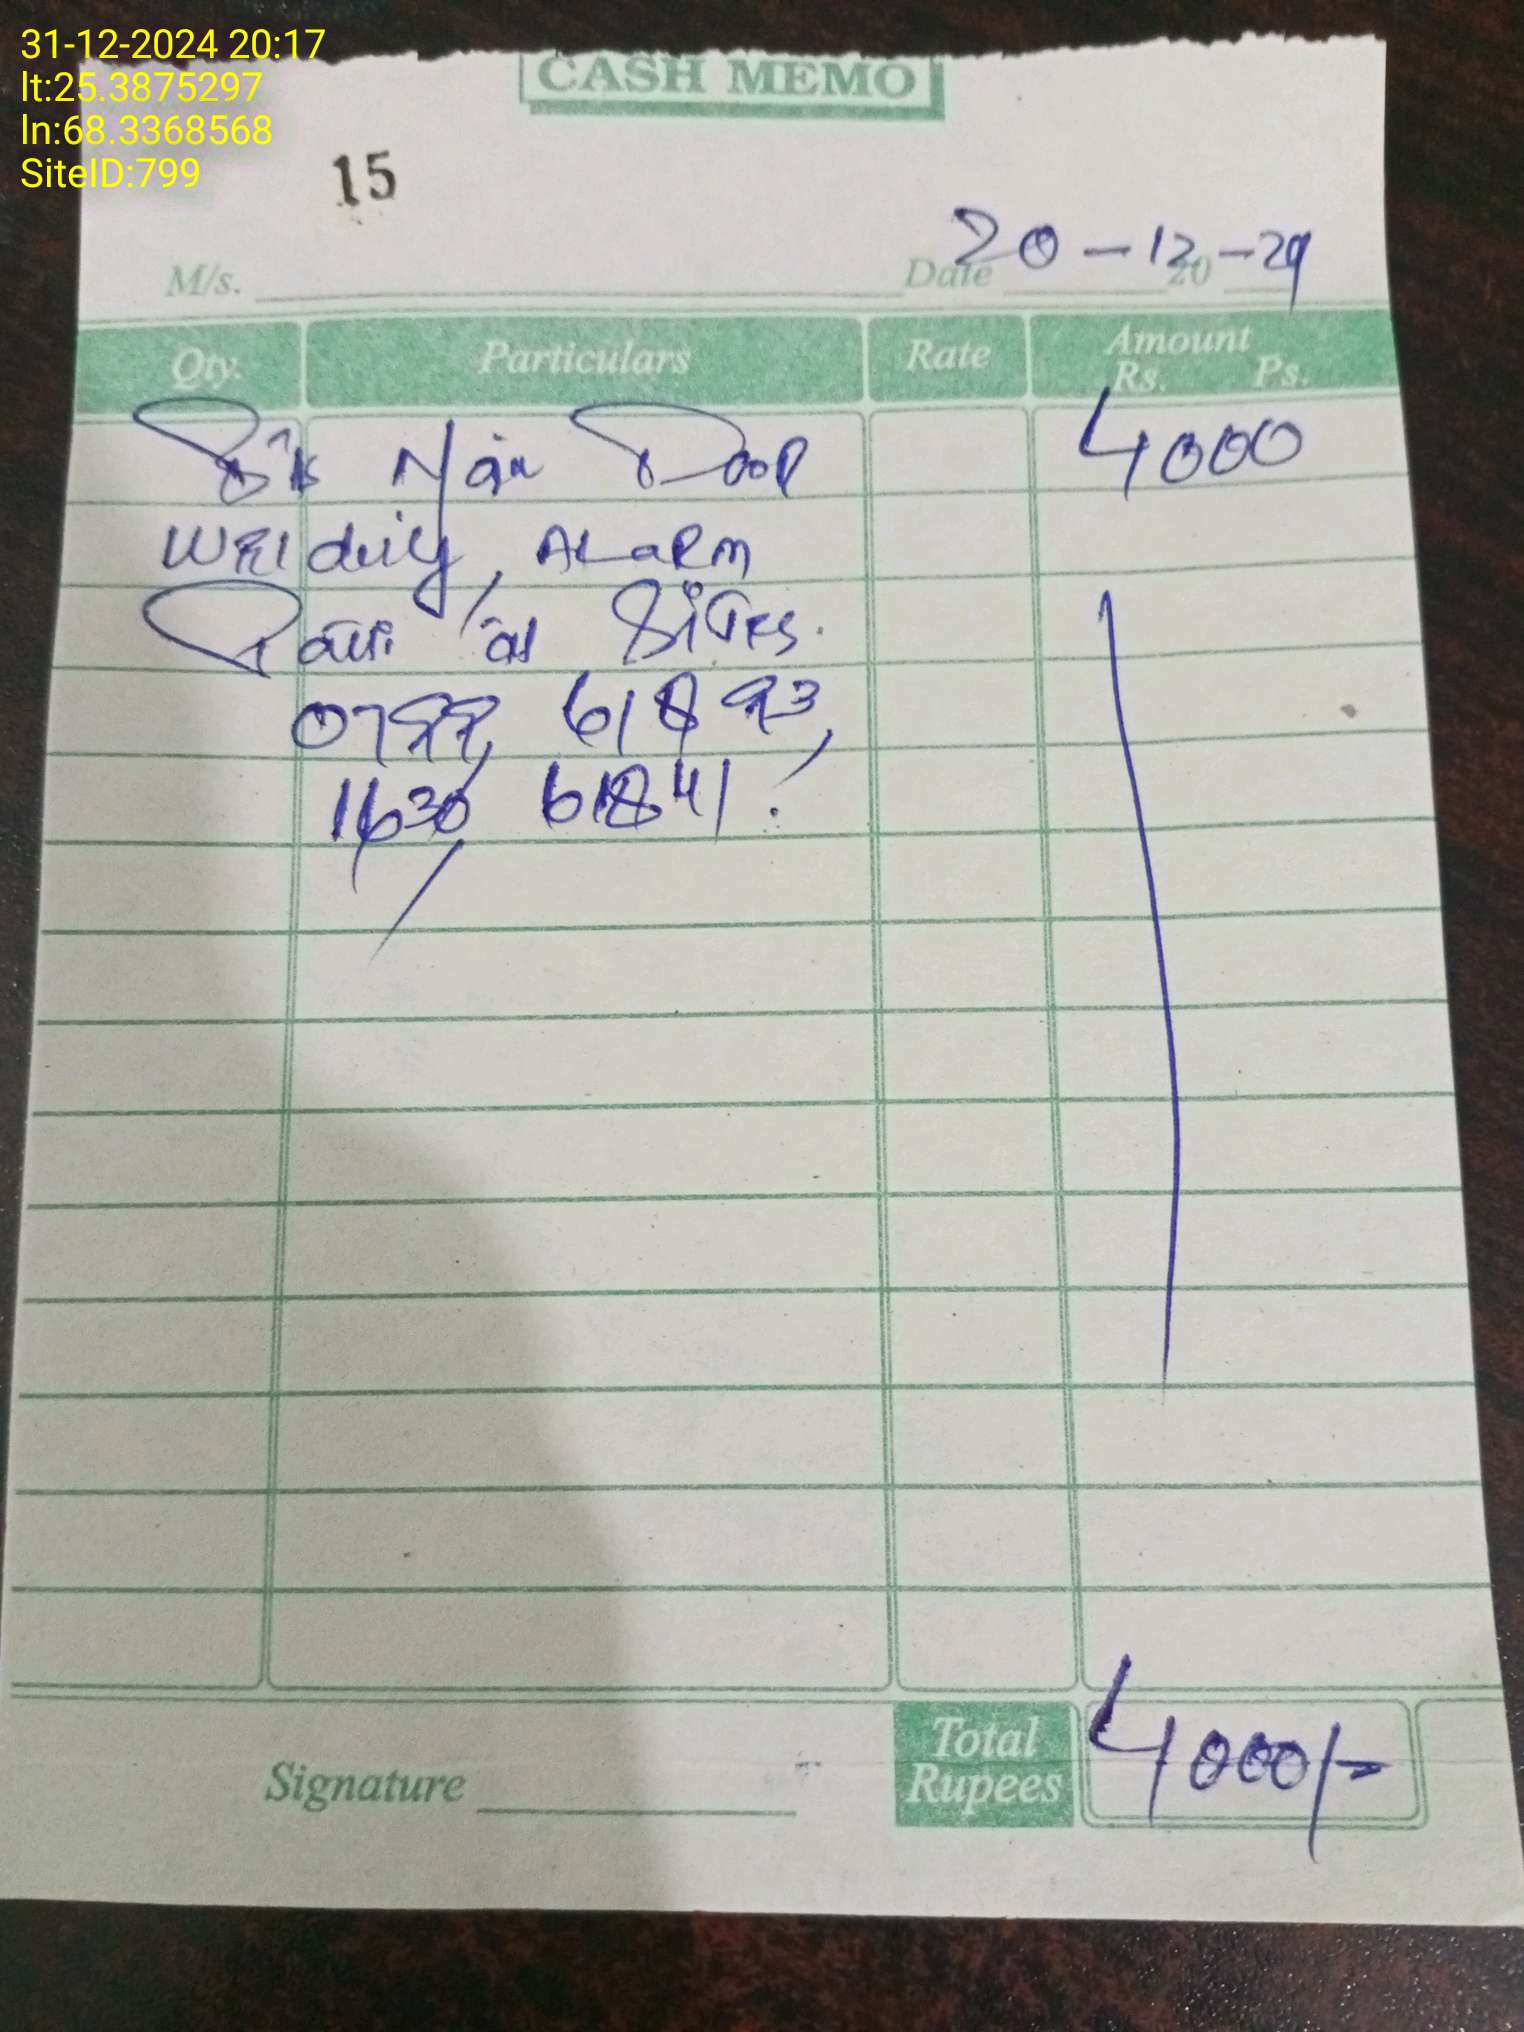 31-12-2024 20:17
lt:25.3875297
ln:68.3368568
SiteID:799
CASH MEMO
15
M/s. Date 20-12-20-24
Qty. Particulars Rate Amount
Rs. Ps.
Main Door 4000
Welding, ALaRM
at Sites.
0799, 61893,
1630, 61841.
Signature Total Rupees 4000/-